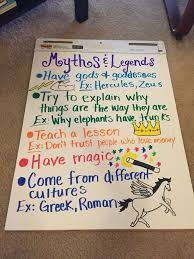 Myths & Legends
• Have gods & goddesses
Ex: Hercules, Zeus
• Try to explain why
things are the way they are
Ex: Why elephants have trunks
• Teach a lesson
Ex: Don't trust people who love money
• Have magic
• Come from different
cultures
Ex: Greek, Roman